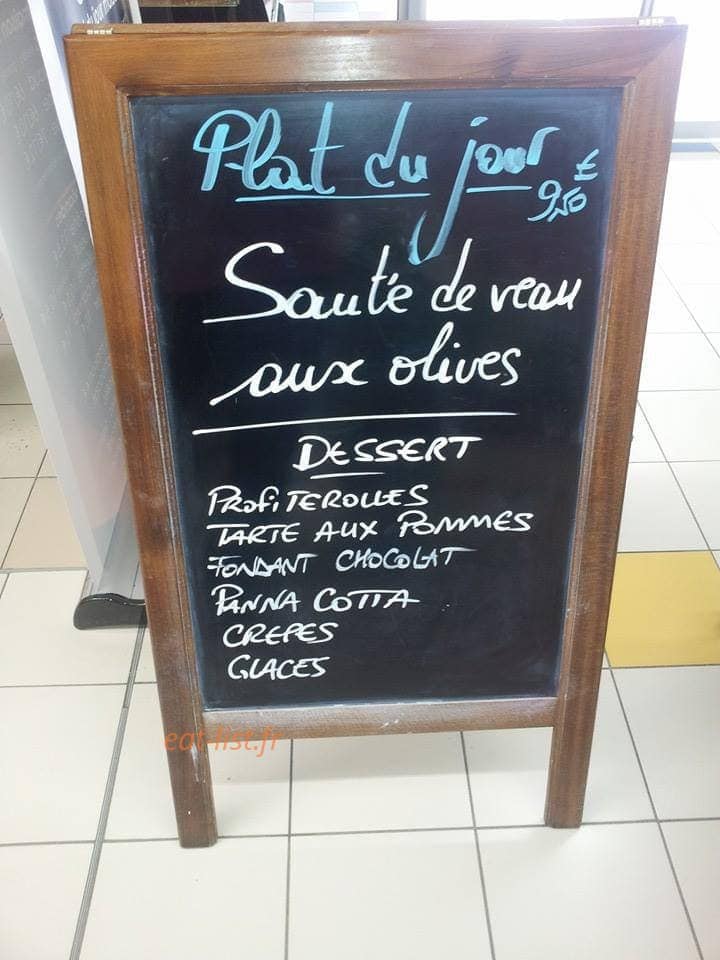 Plat du jour
9,50 €
Sauté de veau
aux olives
DESSERT
PROFITEROLLES
TARTE AUX POMMES
FONDANT CHOCOLAT
PANNA COTTA
CREPES
GLACES
eat-list.fr